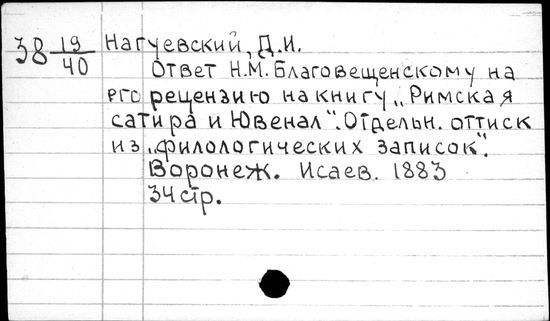 38 19/40 Нагуевский, Д.И.
Ответ Н.М. Благовещенскому на
РГО рецензию на книгу „Римская
сатира и Ювенал". Отдельн. оттиск
из „филологических записок".
Воронеж. Исаев. 1883
34 стр.